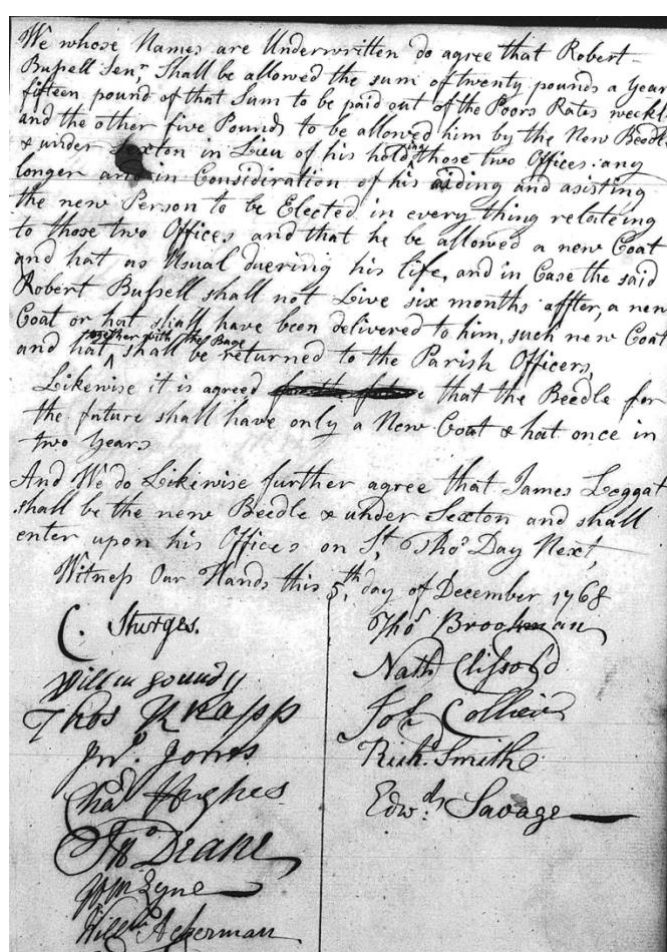 We whose Names are Underwritten do agree that Robert
Bussell Senr, Shall be allowed the sum of twenty pounds a Year
fifteen pound of that Sum to be paid out of the Poors Rates weekl
and the other five Pounds to be allowed him by the New Beedle
& under Sexton in Lieu of his holding those two Offices any
longer and in Considiration of his aiding and asisting
the new Person to be Elected in every thing relateing
to those two Offices, and that he be allowed a new Coat
and hat as Usual duering his life, and in Case the said
Robert Bussell shall not Live six months affter, a new
Coat or hat shall have been delivered to him, such new Coat
together with the Bage
and hat ^ shall be returned to the Parish Officers,
Likewise it is agreed that the Beedle for
the future shall have only a New Coat & hat once in
two Years
And We do Likewise further agree that James Leggat
shall be the new Beedle & under Sexton and shall
enter upon his Offices on St, Thos Day Next,
Witness Our Hands this 5th, day of December 1768
C. Sturges.
Willm Goundy
Thos Knapp
Jno. Jones
Chas Hughes
Jno Deane
Wm Lyne
Willm Ackerman
Thos Brookman
Nath Clifford
Joh Collier
Richd Smith
Edwd. Savage